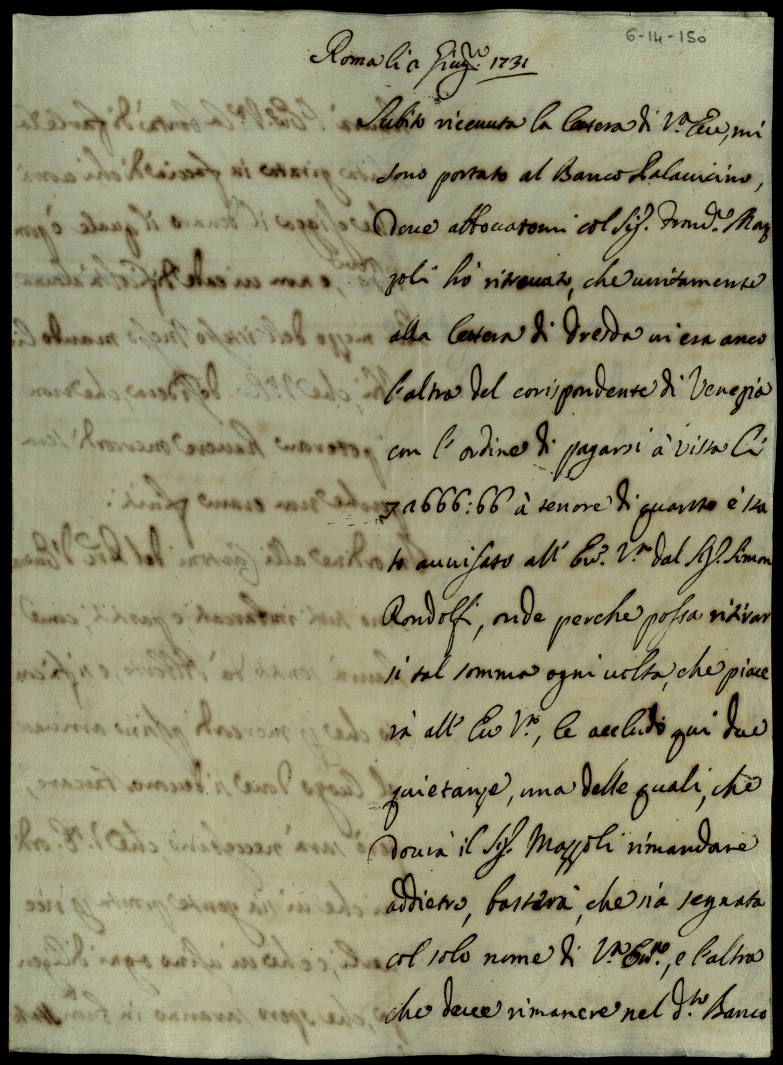 6-14-150
Roma li 2 Giug.º 1731
Subito riceuuta la lettera di V.ª Em, mi
sono portato al Banco Palauicino,
doue abboccatomi col Sig.
zoli hò ritrouato, che unitamente
alla lettera di Dresda ui era anco
l'altra del corispondente di Venezia
con l'ordine di pagarsi à uista li
1666:66 à tenore di quanto è sta
to auuisato all' Em. V.ra dal Sig. Simon
Rondolfi, onde perche possa ritirar
si tal somma ogni uolta, che piace
rà all' Em V.ra, le accludo qui due
quietanze, una delle quali, che
dourà il Sig. Mazzoli rimandare
addietro, basterà, che sia segnata
col solo nome di V.ra Em.ª, e l'altra
che deue rimanere nel d.to Banco